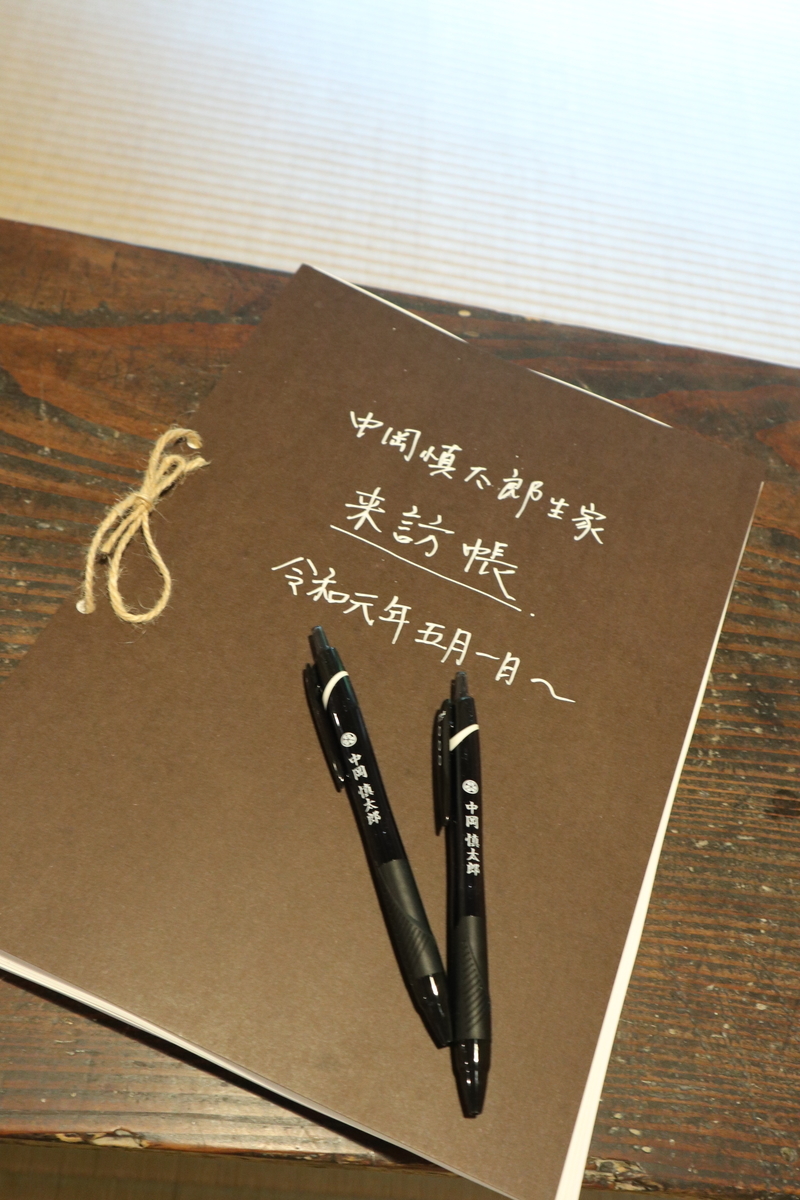 中岡慎太郎生家
来訪帳
令和元年五月一日〜
中岡慎太郎
中岡慎太郎